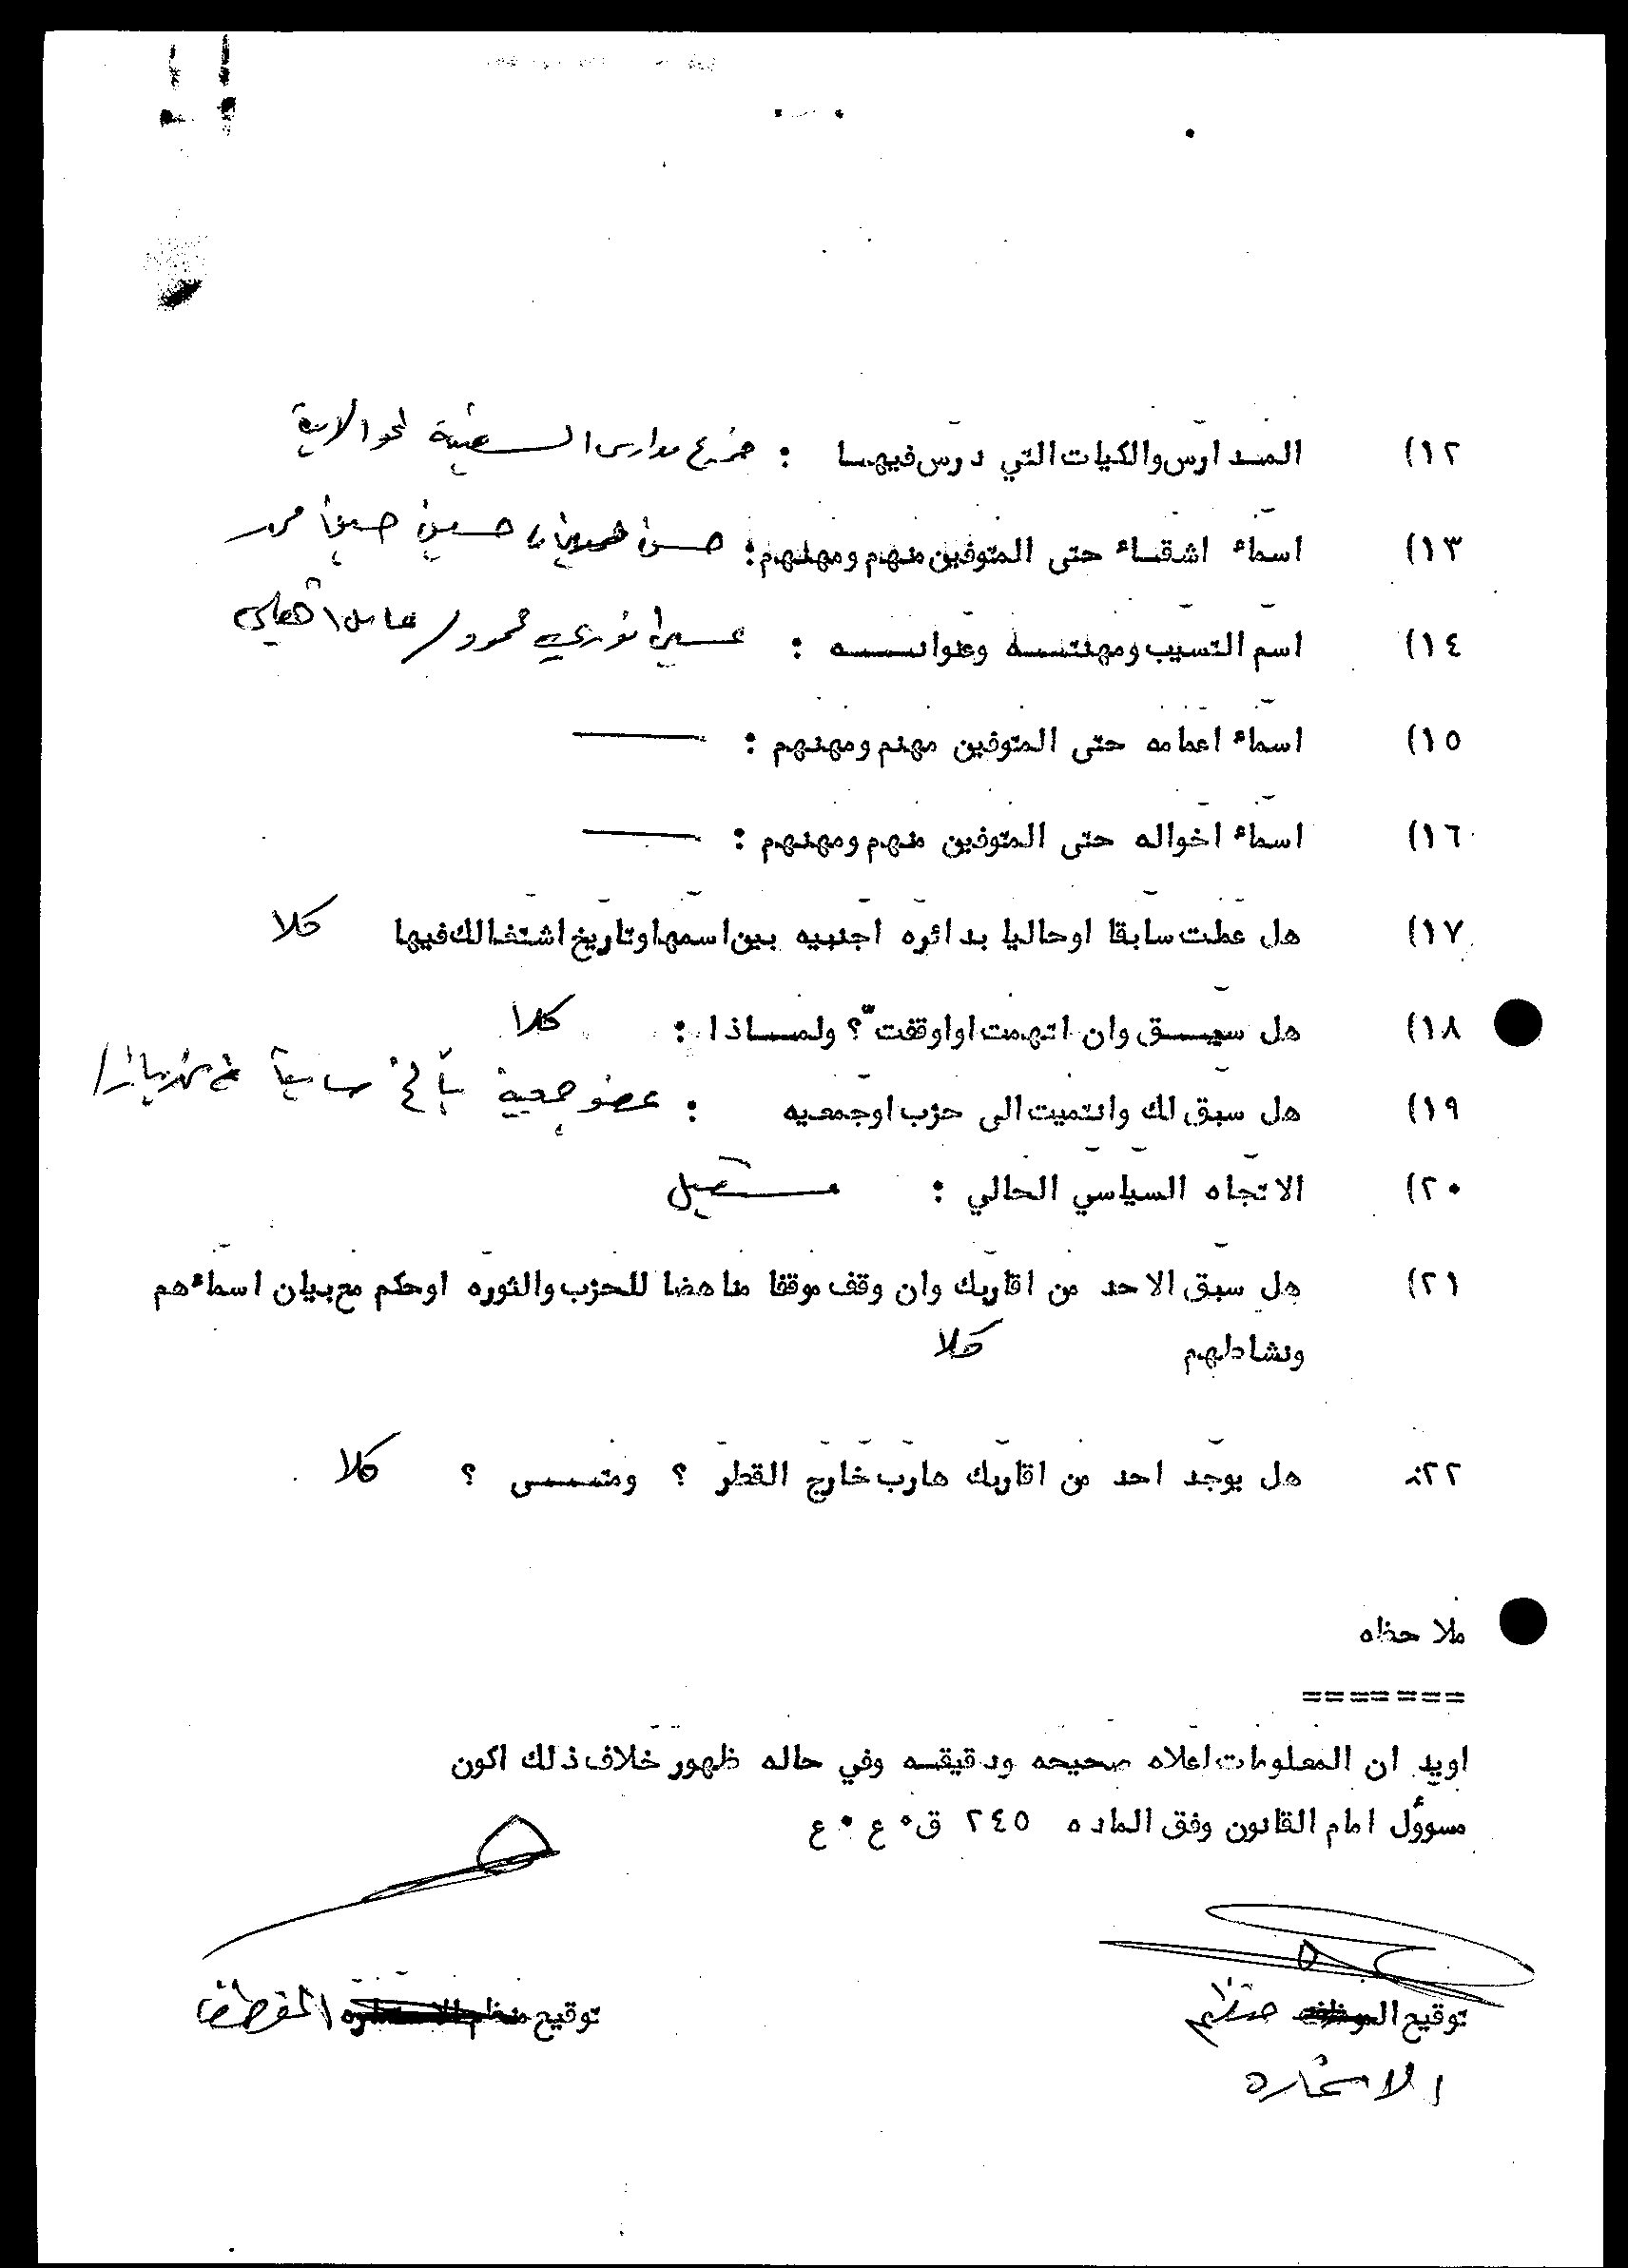 ١٢) المدارس والكيات التي درس فيها : خريج مدارس
١٣) اسماء اشقاء حتى المتوفين منهم ومهنهم : حسن حسين
١٤) اسم التسيب ومهنته وعنوانه : نوري محمود / عامل
١٥) اسماء اعمامه حتى المتوفين مهنم ومهنهم :
١٦) اسماء اخواله حتى المتوفين منهم ومهنهم :
١٧) هل عملت سابقا اوحاليا بدائره اجنبيه بين اسمها وتاريخ اشتغالك فيها كلا
١٨) هل سبق وان اتهمت او اوقفت ؟ ولماذا : كلا
١٩) هل سبق لك وانتميت الى حزب اوجمعيه : عضو جمعية
٢٠) الاتجاه السياسي الحالي : مستقيل
٢١) هل سبق الاحد من اقاربك وان وقف موقفا مناهضا للحزب والثوره اوحكم مع بيان اسماءهم
ونشاطهم كلا
٢٢) هل يوجد احد من اقاربك هارب خارج القطر ؟ ومتى ؟ كلا
ملاحظاه
=======
اويد ان المعلومات اعلاه صحيحه ودقيقه وفي حاله ظهور خلاف ذلك اكون
مسوؤل امام القانون وفق الماده ٢٤٥ ق٠ ع ٠ ع
توقيع منظم توقيع
الاستماره